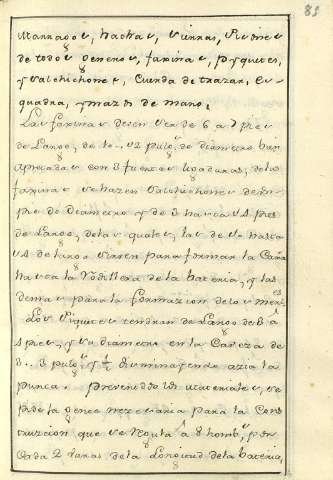 81
Marrazos, hachas, cuñas, Piedras
de todos generos, faxinas, Piquetes,
y Salchichones, Cuerda de trazar, Es-
quadra, y mazos de mano.
Las faxinas deven ser de 6 a 7 pies
de Largo, de 10.. 12 pulgs de diametro bien
apretadas con 3 ligaduras, delas
faxinas se hazen Salchichones de un
pie de Diametro y de 3 hasta 15 pies
de Largo, delas quales, las de 10 hasta
15 de largo sirven para formar la Caña
hasta la Rodillera de la bateria, y las
demas para la formazion de los mer.es
Los Piquetes tendran de Largo de 3 a
4 pies, y su diametro en la Caveza de
3.. 3 pulgs y ½ disminuyendo azia la
punta. prevenidos los materiales, se
pide la gente nezesaria para la Cons
truzion que se regula a 8 hombs, por
Cada 2 varas de la Longitud de la bateria,